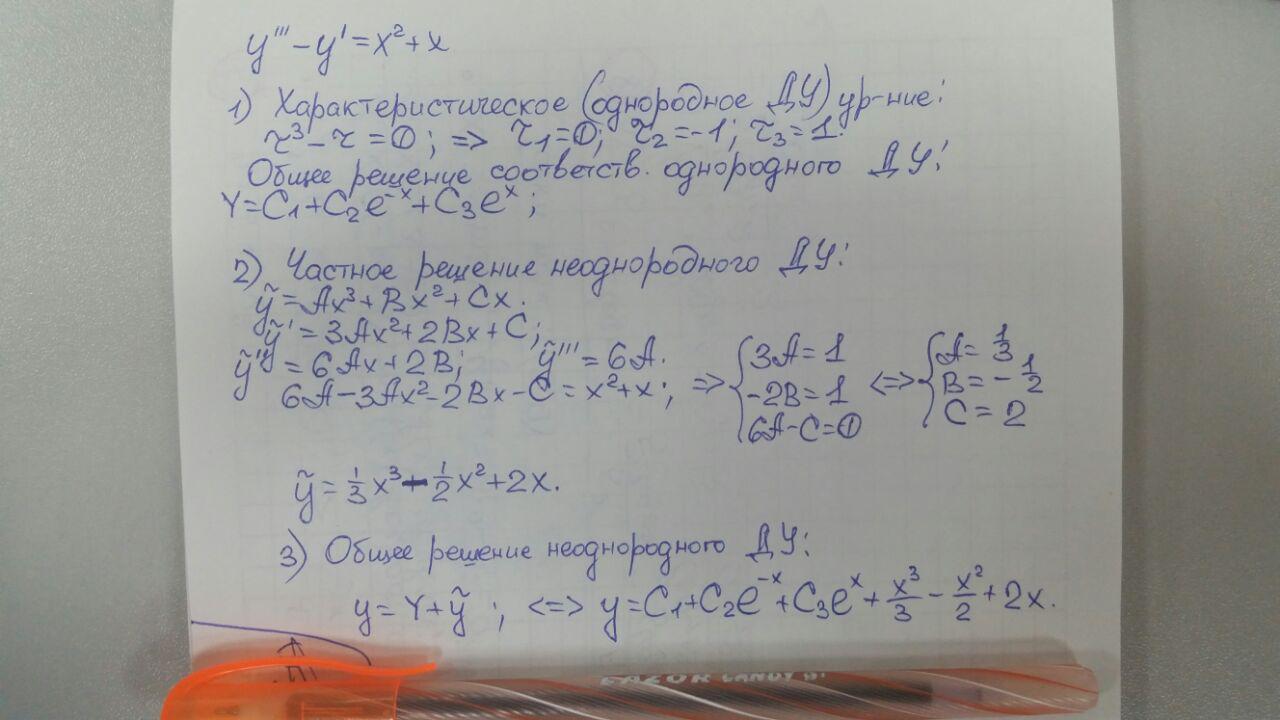 y''' - y' = x² + x
1) Характеристическое (однородное ДУ) ур-ние:
τ³ - τ = 0; => τ₁ = 0; τ₂ = -1; τ₃ = 1.
Общее решение соответств. однородного ДУ:
Y = C₁ + C₂e⁻ˣ + C₃eˣ;
2) Частное решение неоднородного ДУ:
ỹ = Ax³ + Bx² + Cx.
ỹ' = 3Ax² + 2Bx + C;
ỹ'' = 6Ax + 2B; ỹ''' = 6A.
6A - 3Ax² - 2Bx - C = x² + x; => { 3A = 1 <=> { A = 1/3
-2B = 1 B = -1/2
6A - C = 0 C = 2
ỹ = 1/3 x³ - 1/2 x² + 2x.
3) Общее решение неоднородного ДУ:
y = Y + ỹ; <=> y = C₁ + C₂e⁻ˣ + C₃eˣ + x³/3 - x²/2 + 2x.